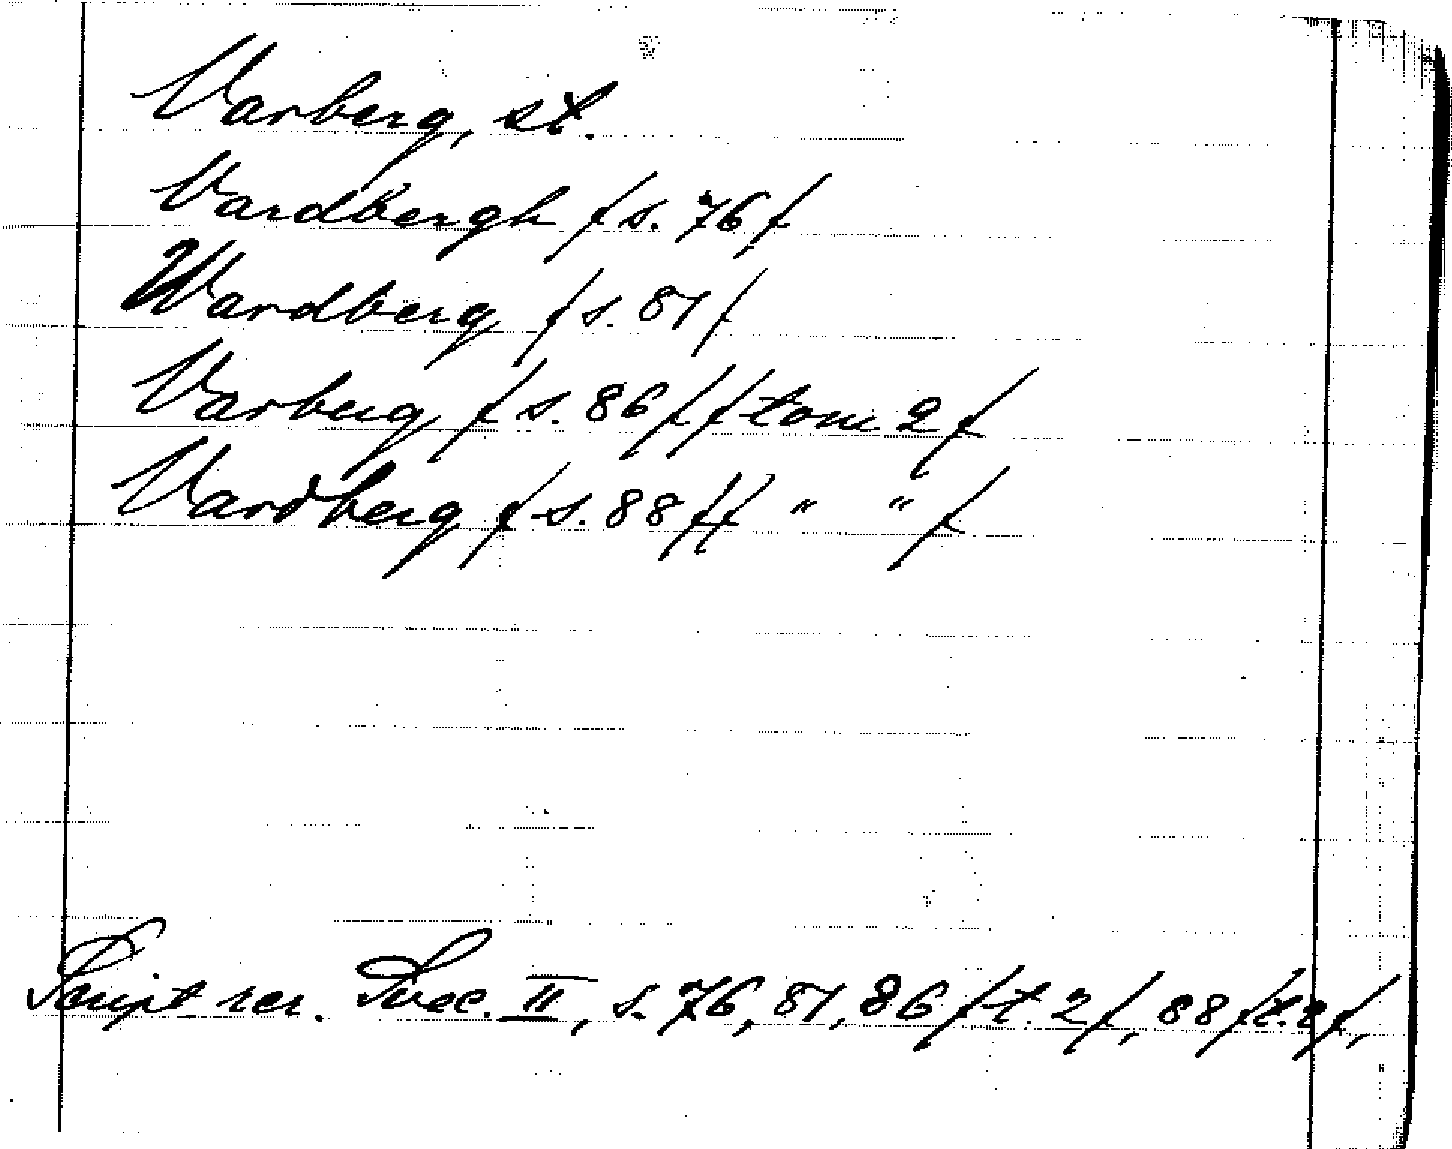 Varberg, st.
Vardbergh /s. 76/
Wardberg /s. 81/
Varberg /s. 86/ /tom 2/
Vardberg /s. 88/ / " " /
Script rer. Svec. II, s. 76, 81, 86 /t. 2/, 88 /t. 2/,